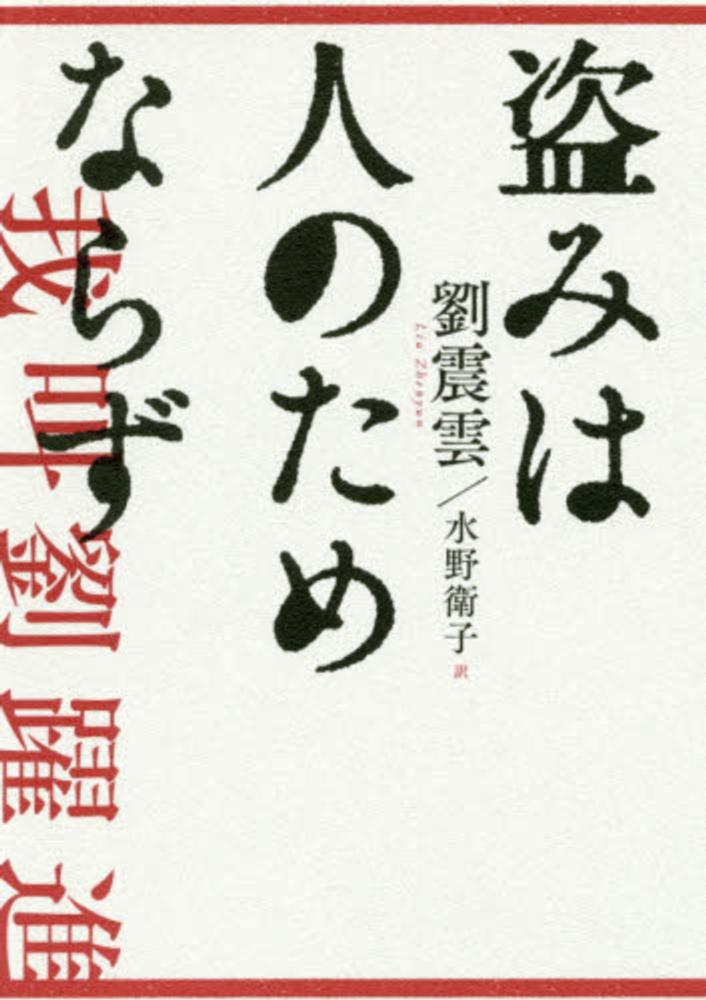 盗みは
劉震雲／水野衛子 訳
Liu Zhenyun
人のため
ならず
我叫劉躍進